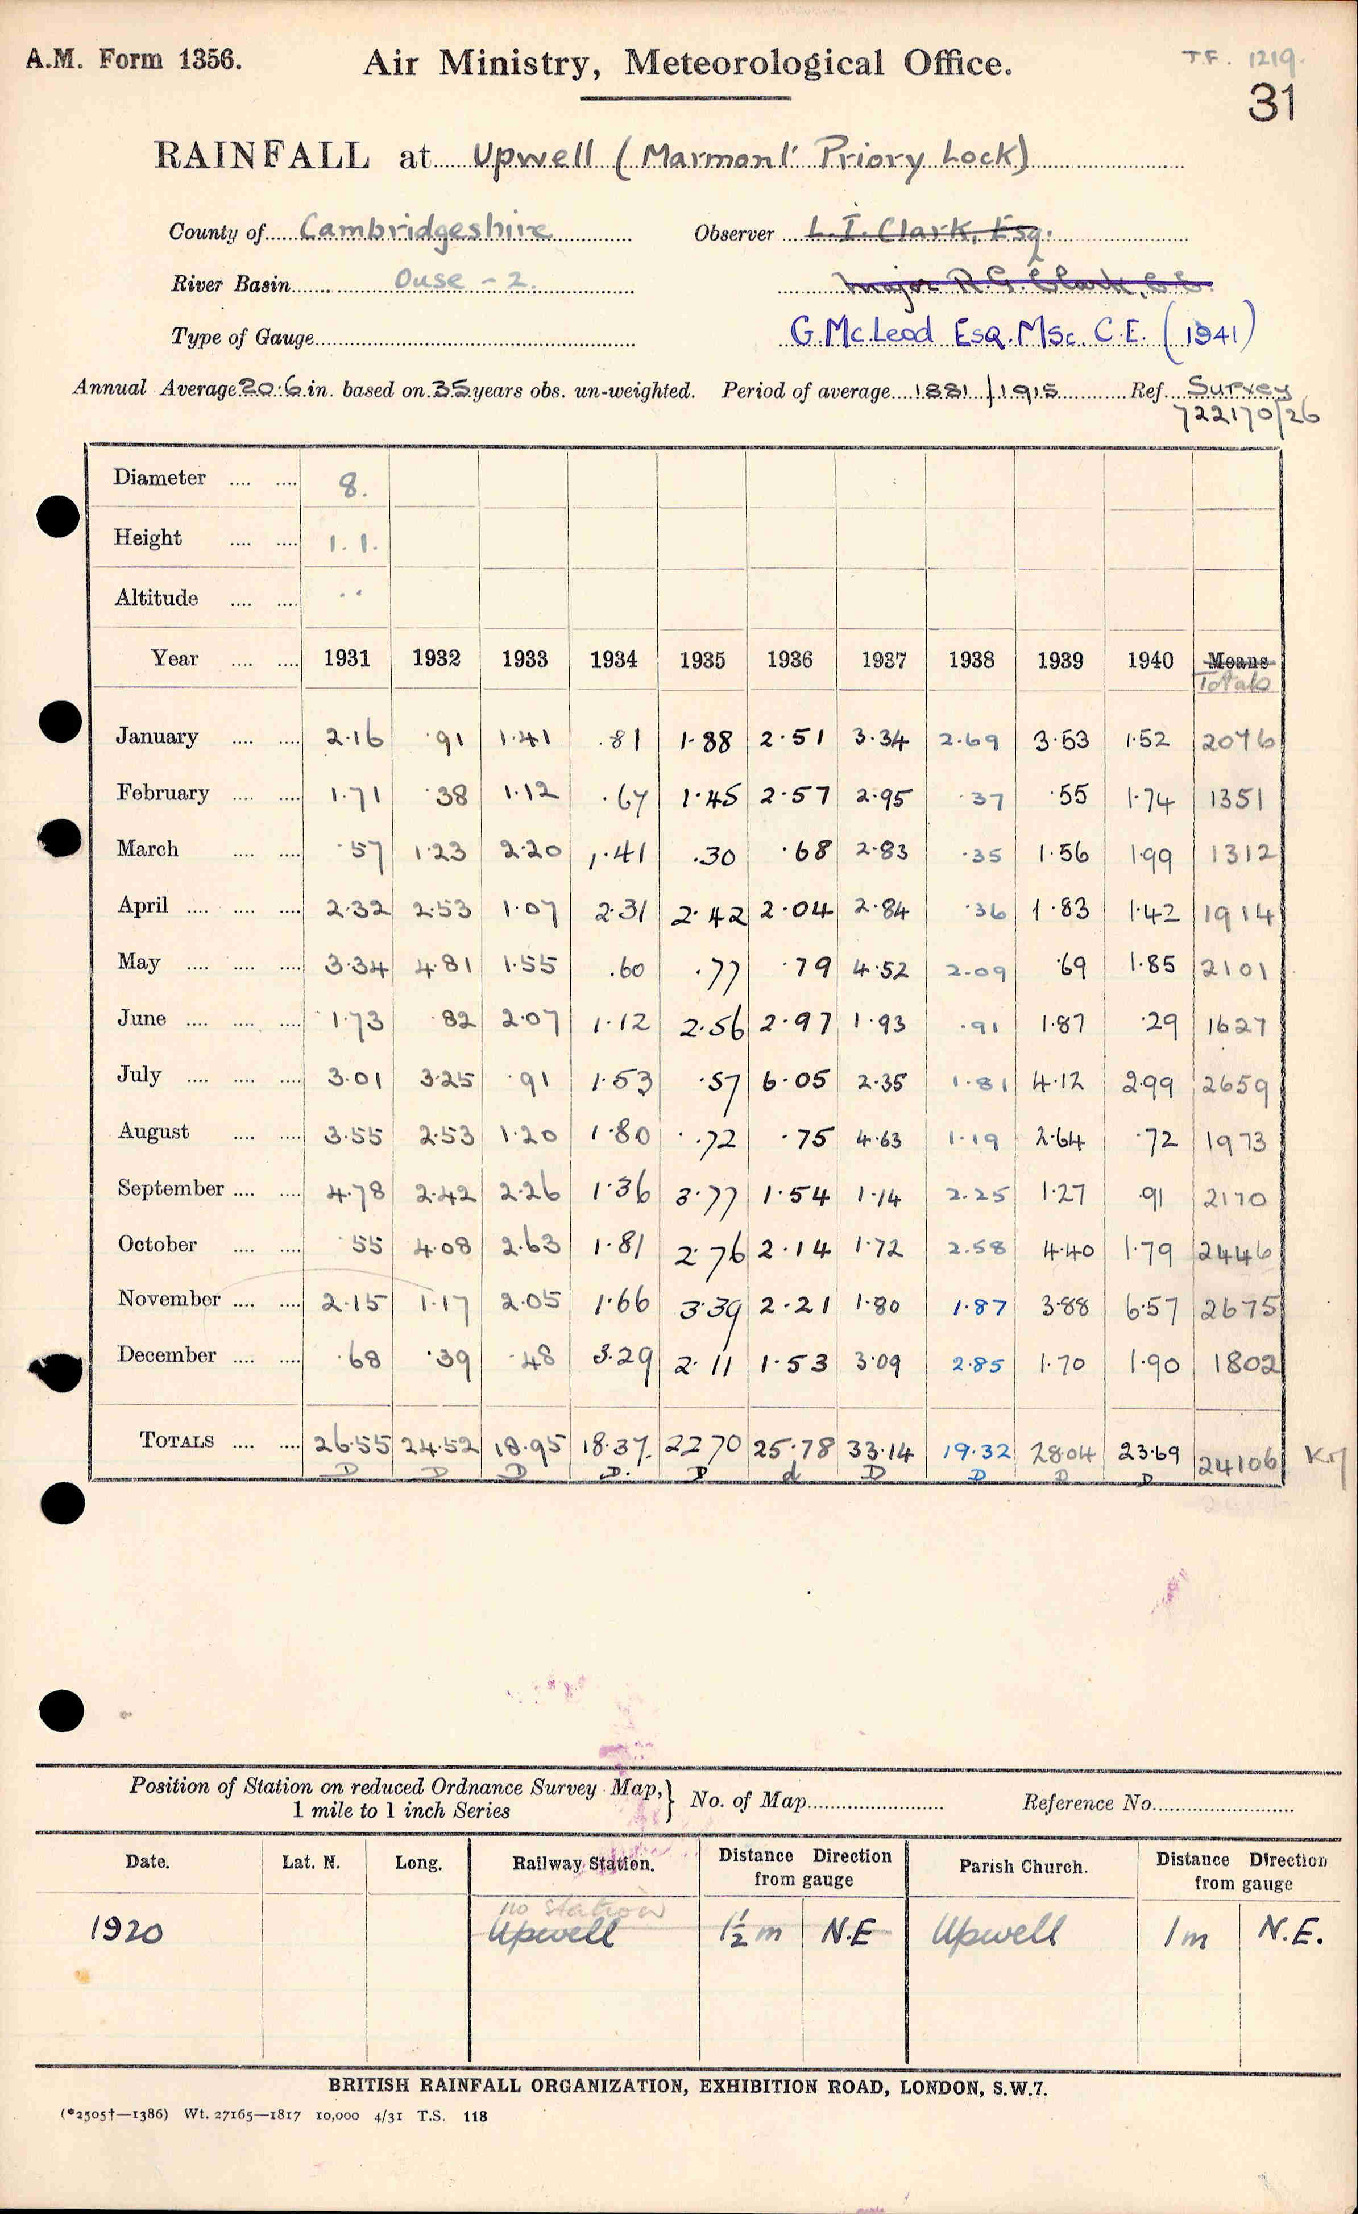 A.M. Form 1356.
Air Ministry, Meteorological Office.
T.F. 1219.
31
RAINFALL at Upwell (Marmont Priory Lock)
County of Cambridgeshire Observer L. I. Clark, Esq.
River Basin Ouse - 2. Major R.G. Clark,
Type of Gauge G. McLeod Esq. MSc. C.E. (1941)
Annual Average 20.6 in. based on 35 years obs. un-weighted. Period of average 1881 / 1915 Ref. Survey
722170/26
Diameter .... .... 8.
Height .... .... 1. 1.
Altitude .... .... ..
Year .... .... 1931 1932 1933 1934 1935 1936 1937 1938 1939 1940 Means
Totals
January .... .... 2.16 .91 1.41 .81 1.88 2.51 3.34 2.69 3.53 1.52 2076
February .... .... 1.71 .38 1.12 .67 1.45 2.57 2.95 .37 .55 1.74 1351
March .... .... .57 1.23 2.20 1.41 .30 .68 2.83 .35 1.56 1.99 1312
April .... .... .... 2.32 2.53 1.07 2.31 2.42 2.04 2.84 .36 1.83 1.42 1914
May .... .... .... 3.34 4.81 1.55 .60 .77 .79 4.52 2.09 .69 1.85 2101
June .... .... .... 1.73 .82 2.07 1.12 2.56 2.97 1.93 .91 1.87 .29 1627
July .... .... .... 3.01 3.25 .91 1.53 .57 6.05 2.35 1.81 4.12 2.99 2659
August .... .... 3.55 2.53 1.20 1.80 .72 .75 4.63 1.19 2.64 .72 1973
September .... .... 4.78 2.42 2.26 1.36 3.77 1.54 1.14 2.25 1.27 .91 2170
October .... .... .55 4.08 2.63 1.81 2.76 2.14 1.72 2.58 4.40 1.79 2446
November .... .... 2.15 1.17 2.05 1.66 3.39 2.21 1.80 1.87 3.88 6.57 2675
December .... .... .68 .39 .48 3.29 2.11 1.53 3.09 2.85 1.70 1.90 1802
TOTALS .... .... 26.55 24.52 18.95 18.37 22.70 25.78 33.14 19.32 28.04 23.69 24106
D D D D. D d D D D D
Position of Station on reduced Ordnance Survey Map, } No. of Map Reference No.
1 mile to 1 inch Series
Date. Lat. N. Long. Railway Station. Distance Direction from gauge Parish Church. Distance Direction from gauge
no station
1920 Upwell 1½ m N.E Upwell 1m N.E.
BRITISH RAINFALL ORGANIZATION, EXHIBITION ROAD, LONDON, S.W.7.
(*2505†—1386) Wt. 27165—1817 10,000 4/31 T.S. 118